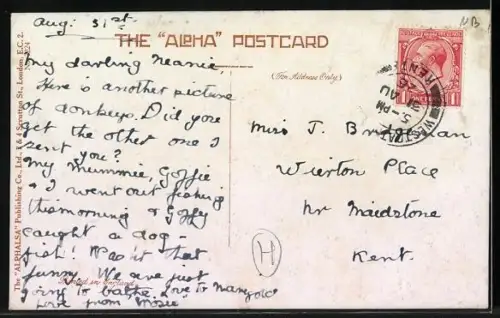 Aug: 31st
THE "ALPHA" POSTCARD
(For Address Only.)
My darling Neanie,
Here is another picture
of donkeys. Did you
get the other one I
sent you?
My Mummie, Goffie
& I went out fishing
this morning & Goffy
caught a dog-
fish! Was it that
funny. We are just
going to bathe. Love to
Love from "Mosie"
Miss J.
Wierton Place
Nr Maidstone
Kent.
H
NB
The "ALPHALSA" Publishing Co., Ltd., 2 & 4 Scrutton St., London, E.C. 2.
KENT
5 - PM
31 AU